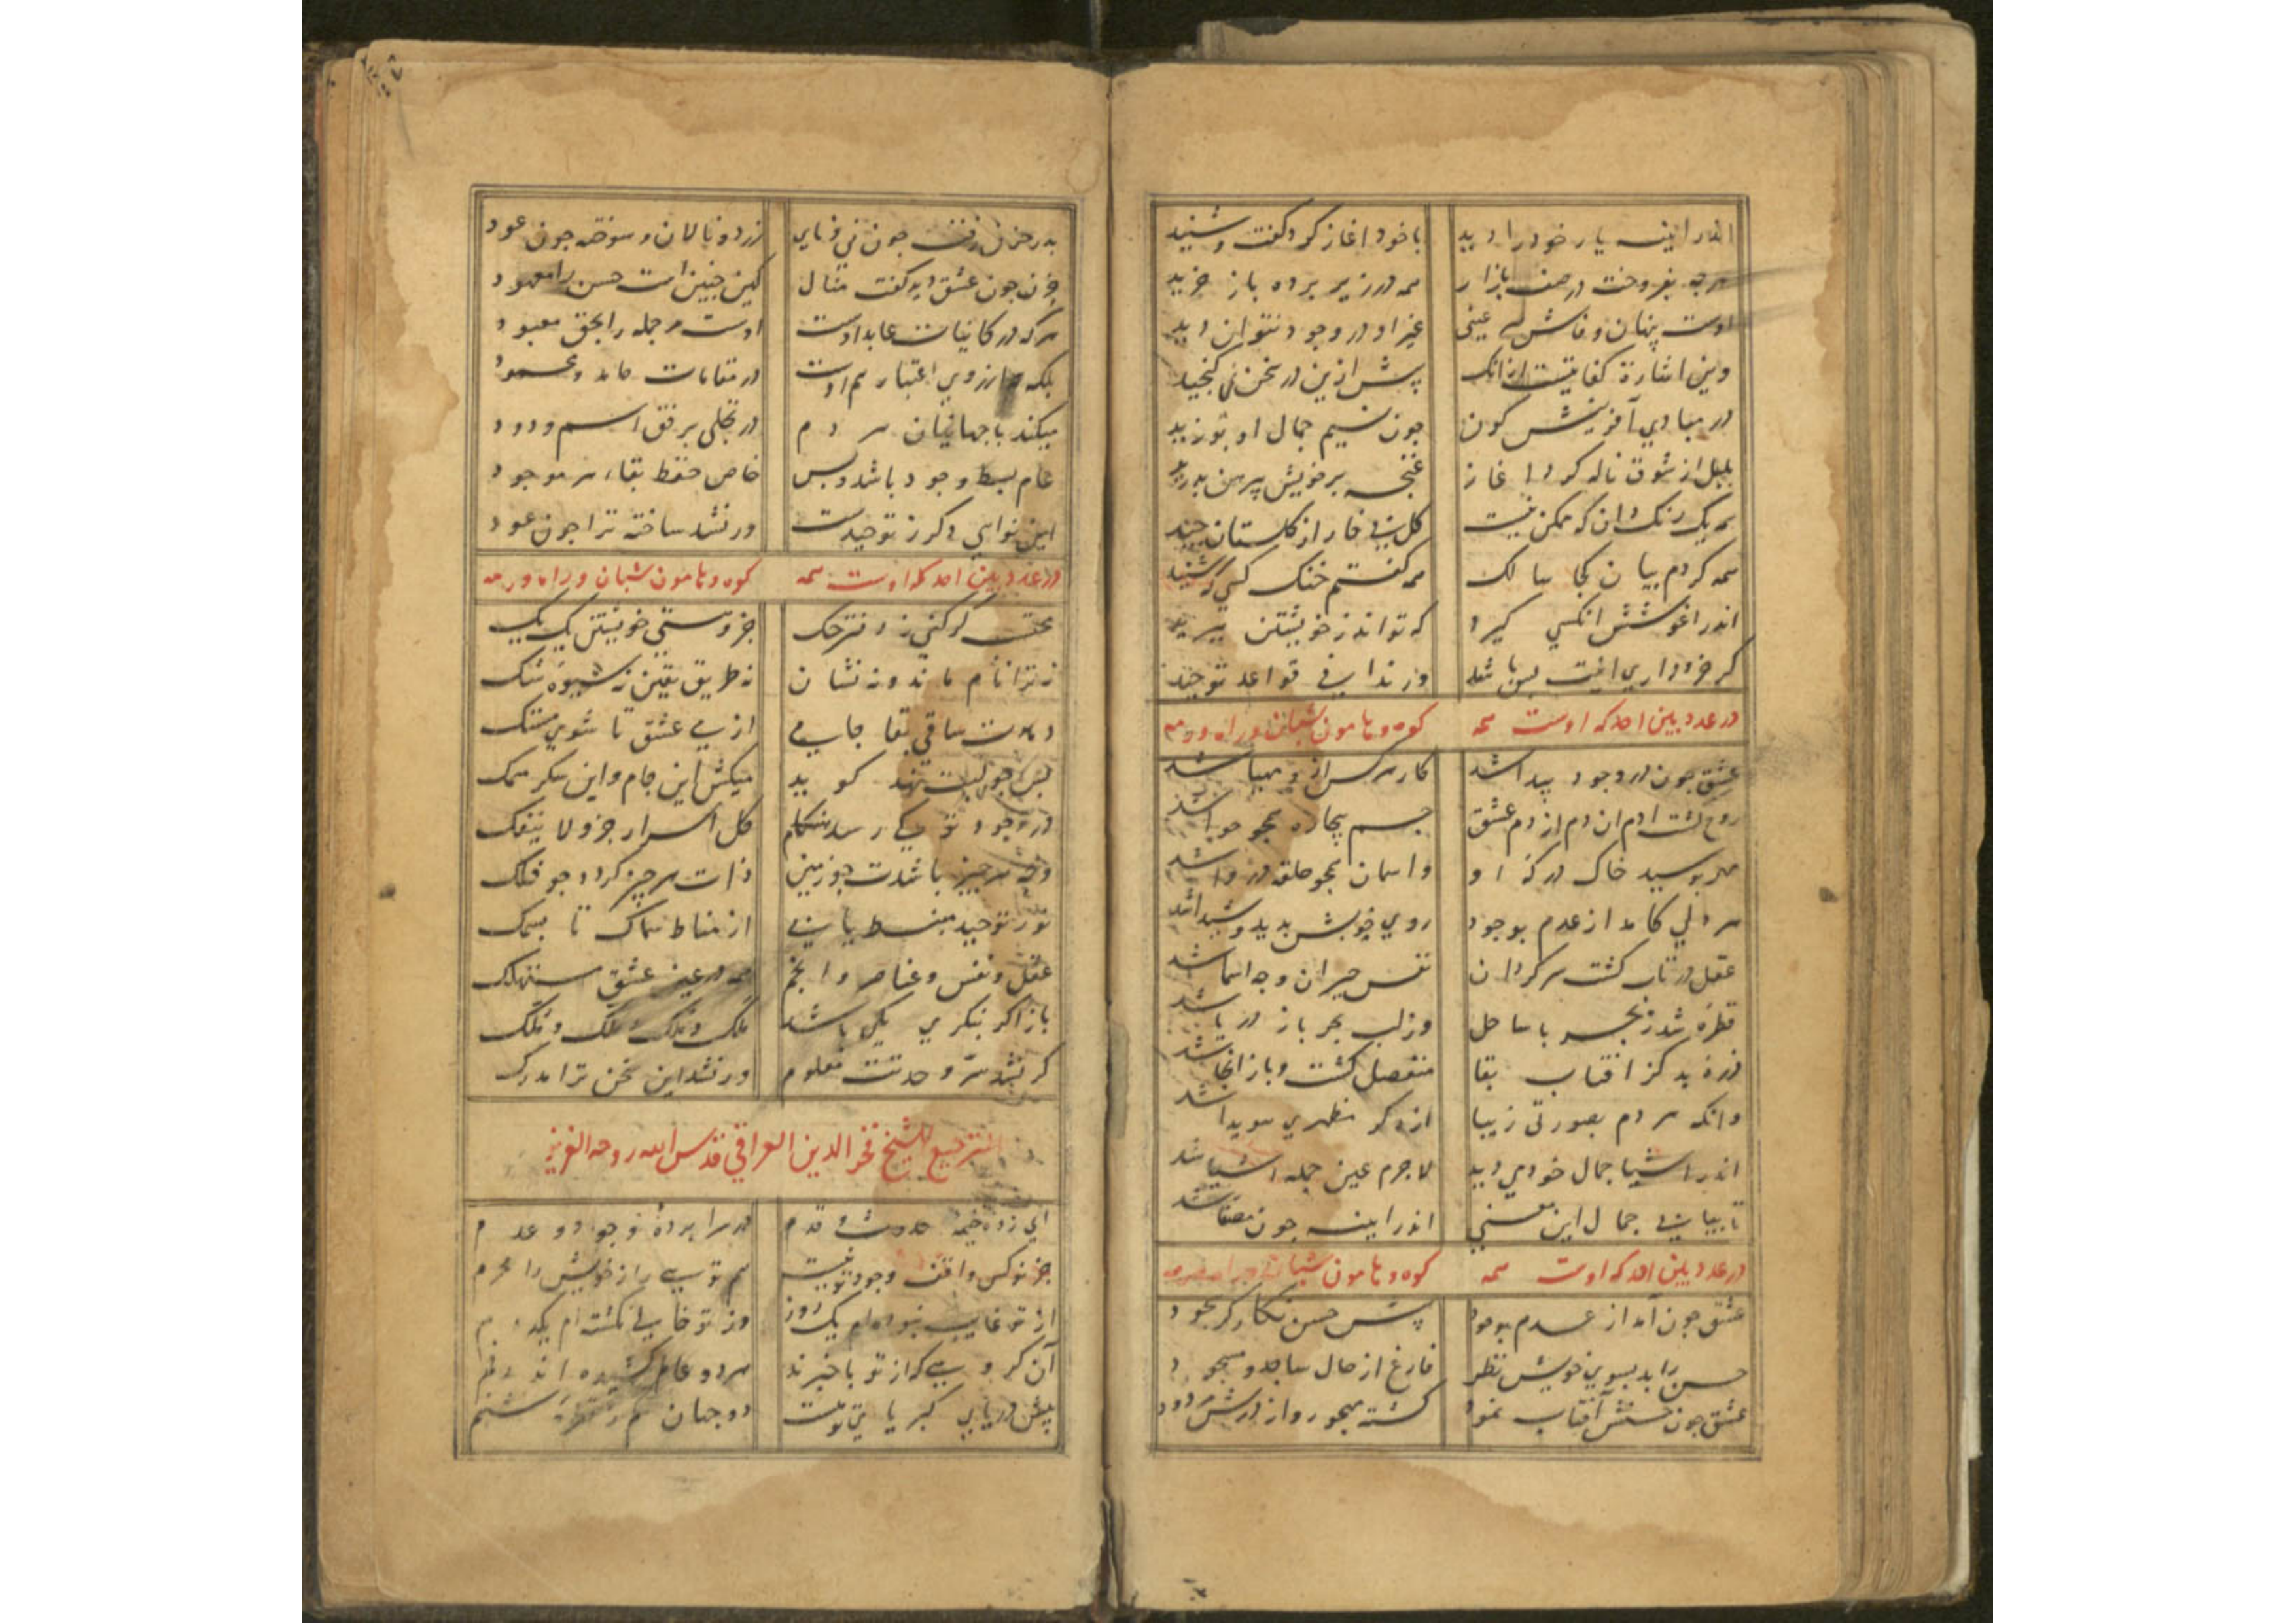 اندر اینه یار خود را دید با خود اغاز کرد گفت و شنید
هرچه بفروخت در صف بازار همه در زیر پرده باز خرید
اوست پنهان و فاش عینی غیر او در وجود نتوان دید
وین اشارة کفایتست ازانک پیش ازین در سخن نمی گنجید
در مبادی آفرینش کون چون نسیم جمال او بوزید
بلبل از شوق ناله کرد اغاز غنچه بر خویش پیرهن بدرید
همه یک رنک دان که ممکن نیست کل بی خار از کلستان چید
همه کردم بیان کجا سالک همه کفتم خنک کسی که شنید
اندر اغوشش انکسی کیرد که تواند ز خویشتن ببرید
کر خرد داری اینت بس باشد وز ندایی قواعد توحید
در عدد بین احد که اوست همه کوه و هامون شبان و راه و رمه
عشق چون در وجود پیدا شد کار هرکس از و مهیا شد
روح کشت ادم ان دم از دم عشق جسم بیچاره همچو حوا شد
مهر بوسید خاک درکه او واسمان همچو حلقه در وا شد
هر دلی کامد از عدم بوجود روی خوبش بدید و شیدا شد
عقل در تاب کشت سرکردان نفس حیران وجه اسما شد
قطرهٔ شد ز بحر با ساحل وز لب بحر باز دریا شد
ذرهٔ بد کز افتاب بقا منفصل کشت و باز انجا شد
وانکه هر دم بصورتی زیبا از دکر مظهری هویدا شد
اندر اشیا جمال خود می دید لاجرم عین جمله اشیا شد
تا ببیانی جمال این معنی اندر اینه چون مصفا شد
در عدد بین احد که اوست همه کوه و هامون شبان و راه و رمه
عشق چون آمد از عدم بوجود پیش حسن نکار کر بجود
حسن را بد بسوی خویش نظر فارغ از حال ساجد و مسجود
عشق چون حسنش آفتاب نمود کشته مهجور و از درش مردود
بدر حزن رفت چون نی و نای زرد و نالان و سوخته چون عود
حزن چون عشق دید کفت منال کین چنین است حسن را معهود
هرکه در کاینات عابد اوست اوست مر جمله را بحق معبود
بلکه از روی اعتبار هم اوست در مقامات حامد و محمود
میکند با جهانیان هر دم در تجلی برفق اسم ودود
عام بسط وجود باشد و بس خاص حفظ بقاء هر موجود
این نوایی دکر ز توحیدست ور نشد ساخته ترا چون عود
در عدد بین احد که اوست همه کوه و هامون شبان و راه و رمه
محتب کر کنی ز دفتر حک جز و هستی خویشتن یک یک
نه ترا نام ماند و نه نشان نه طریق یقین نه شیوهٔ شک
دهدت ساقی بقا جامی از می عشق تا شوی مستک
بس چو لبت نهد کوید میکش این جام و این سکر میمک
در وجود تو کی رسد هنکام کل اسرار جزو لا ینفک
وجه هر چیز باشدت چو زمین ذات هر چیز کردد چو فلک
نور توحید منبسط یابی از مناط سماک تا بسمک
عقل و نفس و عناصر و انجم همه در عین عشق مستهلک
باز اکر بنکری یکی باشد ملک و ملک و فلک
کر نشد سر وحدتت معلوم ور نشد این سخن ترا مدرک
الترجیع للشیخ فخر الدین العراقی قدس الله روحه العزیز
ای زده خیمه حدوث و قدم در سرا پردهٔ وجود و عدم
جز تو کس واقف وجود تو نیست هم تویی راز خویش را محرم
از تو غایب نبوده ام یک روز وز تو خالی نکشته ام یکدم
آن کروهی که از تو باخبرند بر دو عالم کشیده اند رقم
پیش دریای کبریای توست دو جهان کم ز قطرهٔ شبنم